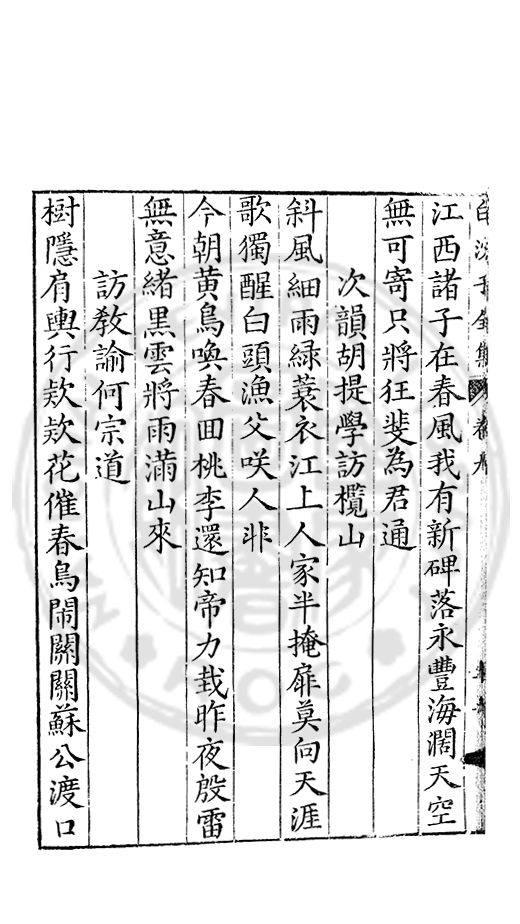 江西諸子在春風我有新碑落永豐海濶天空
無可寄只將狂斐為君通
次韻胡提學訪欖山
斜風細雨緑蓑衣江上人家半掩扉莫向天涯
歌獨醒白頭漁父咲人非
今朝黄鳥喚春囬桃李還知帝力栽昨夜殷雷
無意緒黑雲將雨滿山來
訪敎諭何宗道
樹隱肩輿行欵欵花催春鳥閙關關蘇公渡口